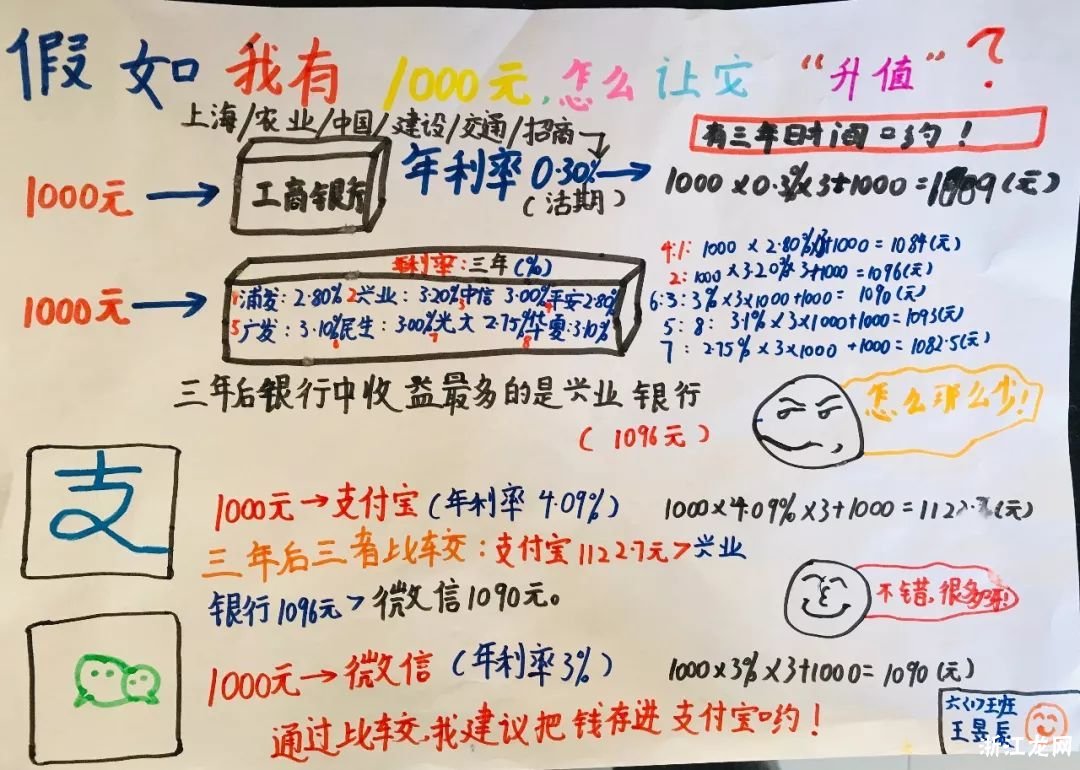 假如我有1000元,怎么让它“升值”?
上海/农业/中国/建设/交通/招商
有三年时间哟!
1000元 → 工商银行 年利率0.30% → 1000×0.3%×3+1000=1009(元)
(活期)
年利率:三年(%)
1000元 → 1浦发:2.80% 2兴业:3.20% 3中信 3.00% 4平安2.80%
5广发:3.10% 6民生:3.00% 7光大 2.75% 8华夏:3.10%
4:1:1000×2.80%×3+1000=1084(元)
2:1000×3.20%×3+1000=1096(元)
6:3:3%×3×1000+1000=1090(元)
5:8:3.1%×3×1000+1000=1093(元)
7:2.75%×3×1000+1000=1082.5(元)
三年后银行中收益最多的是兴业银行
(1096元)
怎么那么少!
支
1000元→支付宝(年利率4.09%) 1000×4.09%×3+1000=1122.7(元)
三年后三者比较:支付宝1122.7元>兴业
银行1096元>微信1090元。
不错,很多呀!
1000元→微信(年利率3%) 1000×3%×3+1000=1090(元)
通过比较,我建议把钱存进支付宝哟!
六(1)班
王昱
浙江龙网